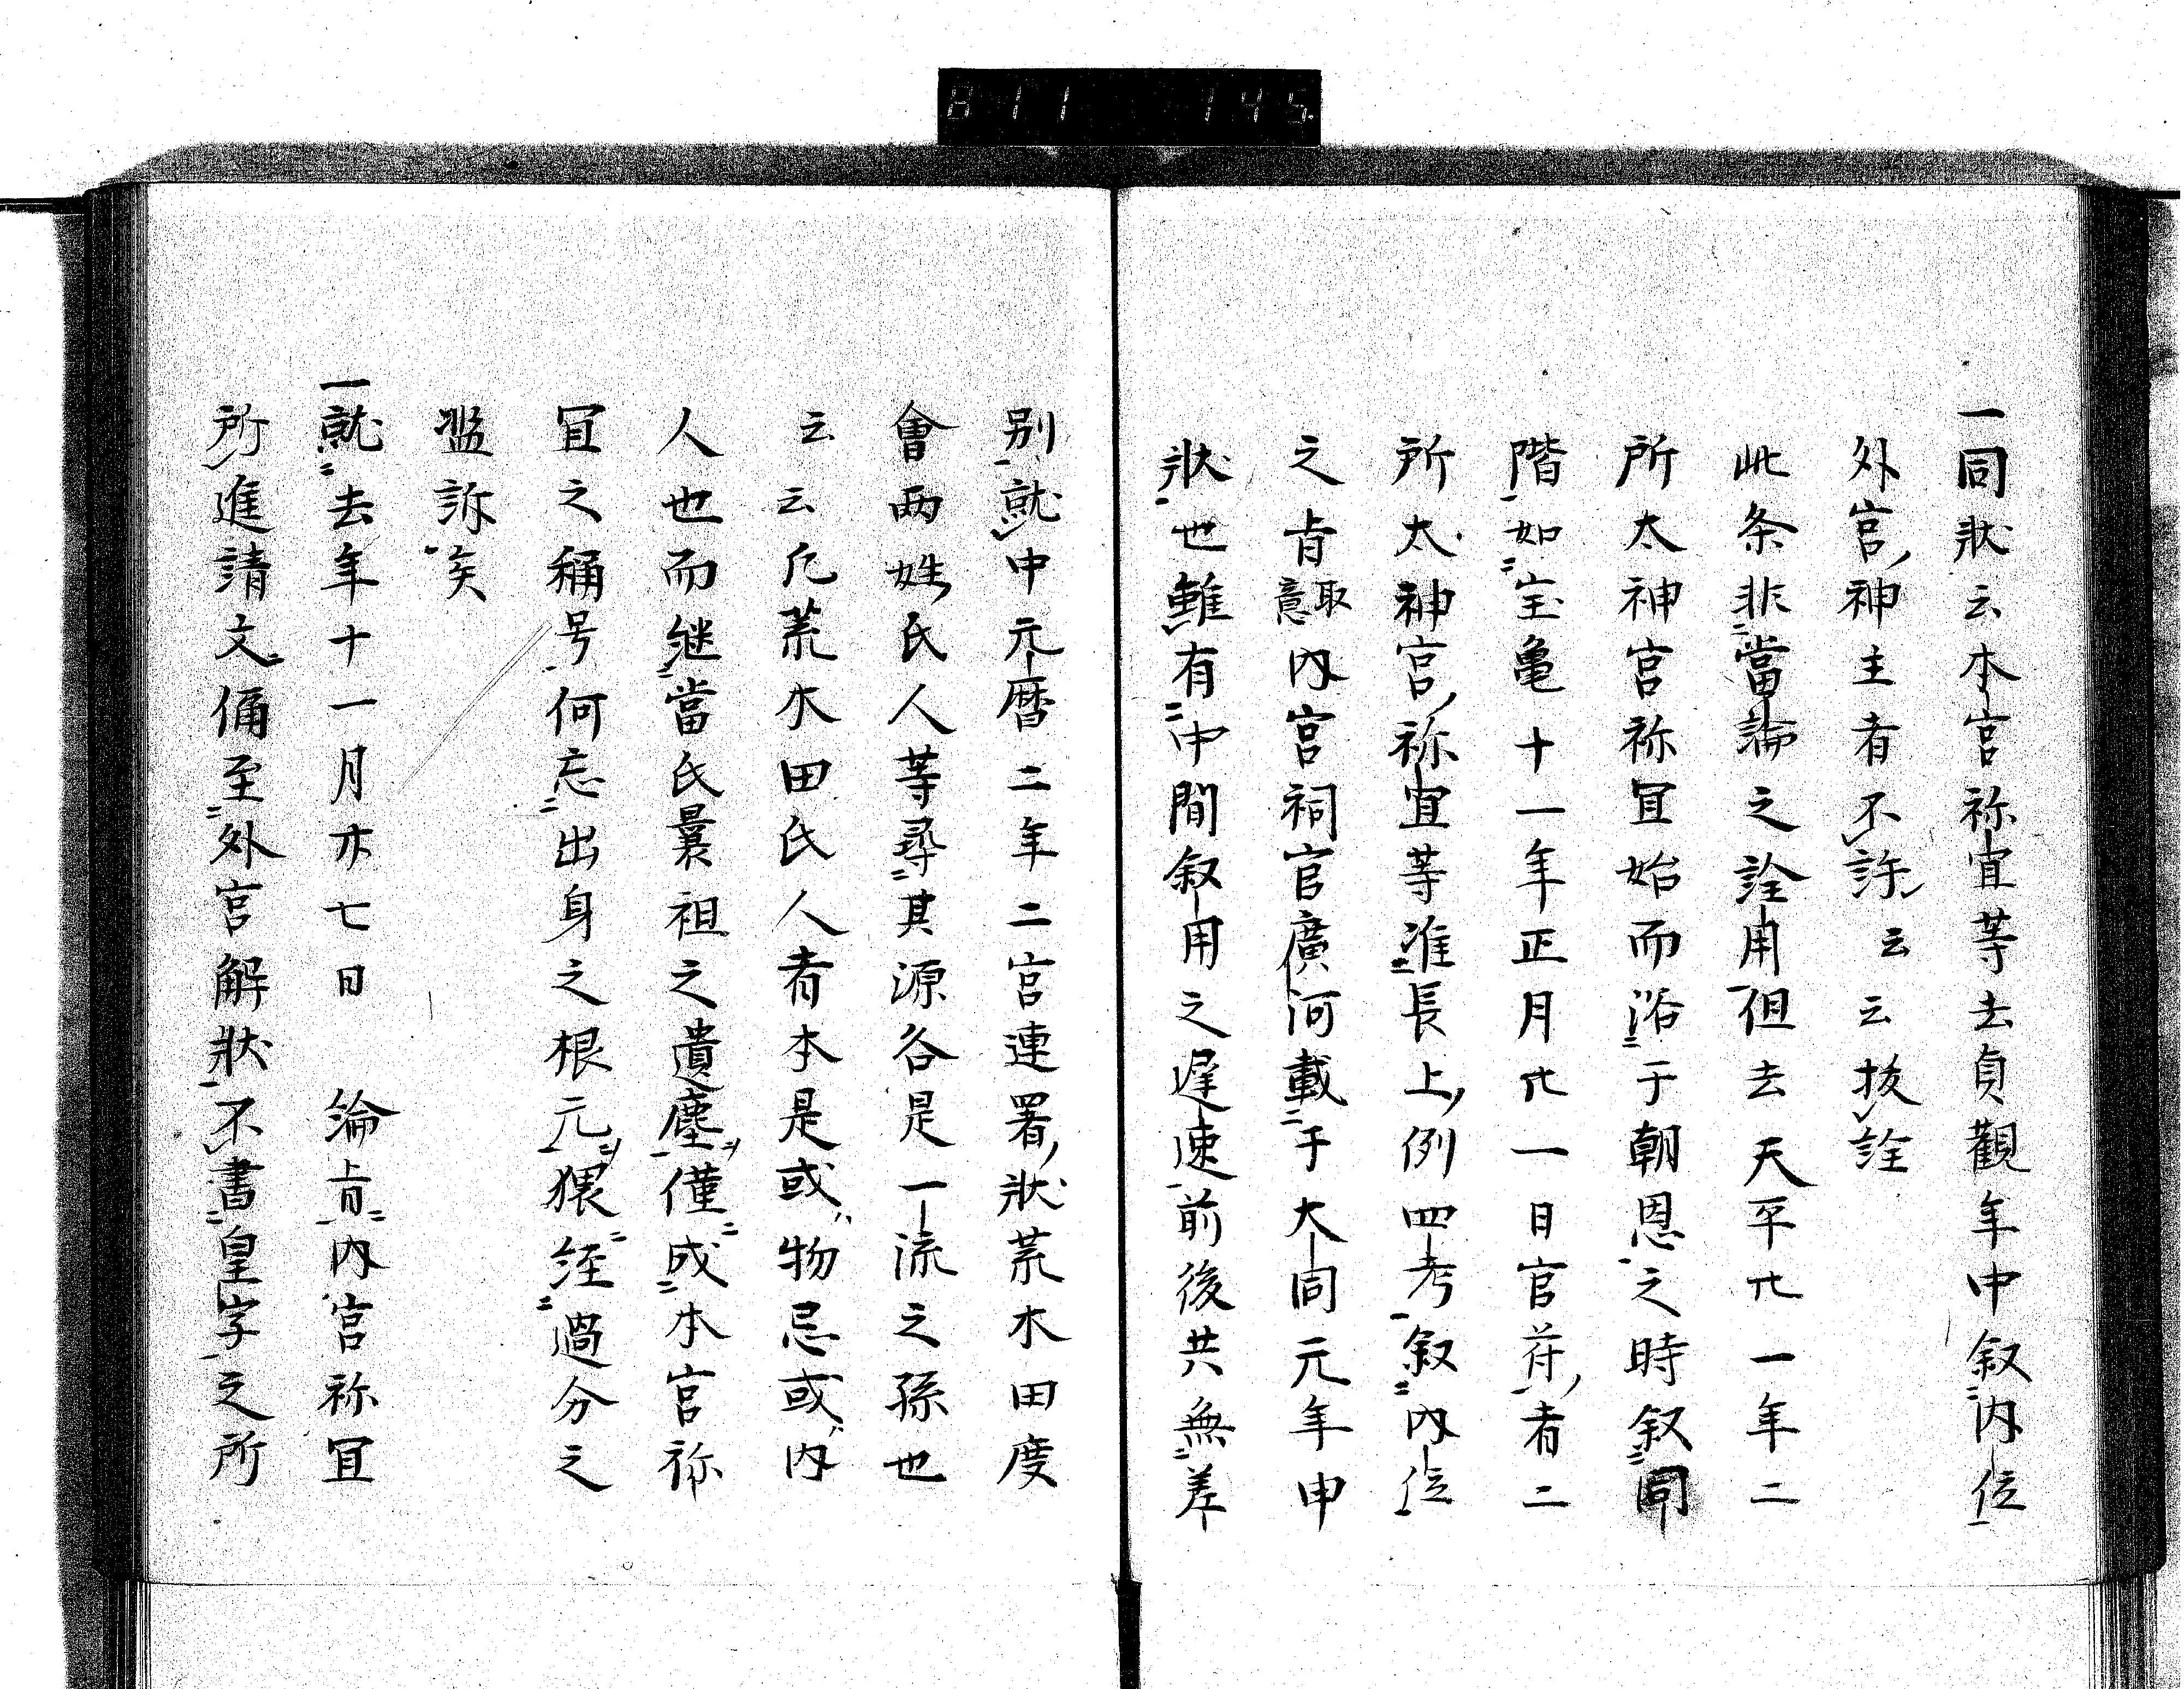 一同状云本宮祢宜等去貞觀年中叙内位
外宮神主者不許云云抜詮
此条非當論之詮用但去天平廿一年二
所太神宮祢宜始而浴于朝恩之時叙同
階如宝亀十一年正月廿一日官苻者二
所太神宮祢宜等准長上例四考叙内位
之旨取意内宮祠官廣河載于大同元年申
状也雖有中間叙用之遅速前後共無差
別就中元暦二年二宮連署状荒木田度
會两姓氏人等尋其源各是一流之孫也
云云凢荒木田氏人者本是或物忌或内
人也而継當氏曩祖之遺塵僅成本宮祢
宜之稱号何忘出身之根元猥経過分之
濫訴矣
一就去年十一月廿七日 綸旨内宮祢宜
所進請文俑至外宮解状不書皇字之所
811 145